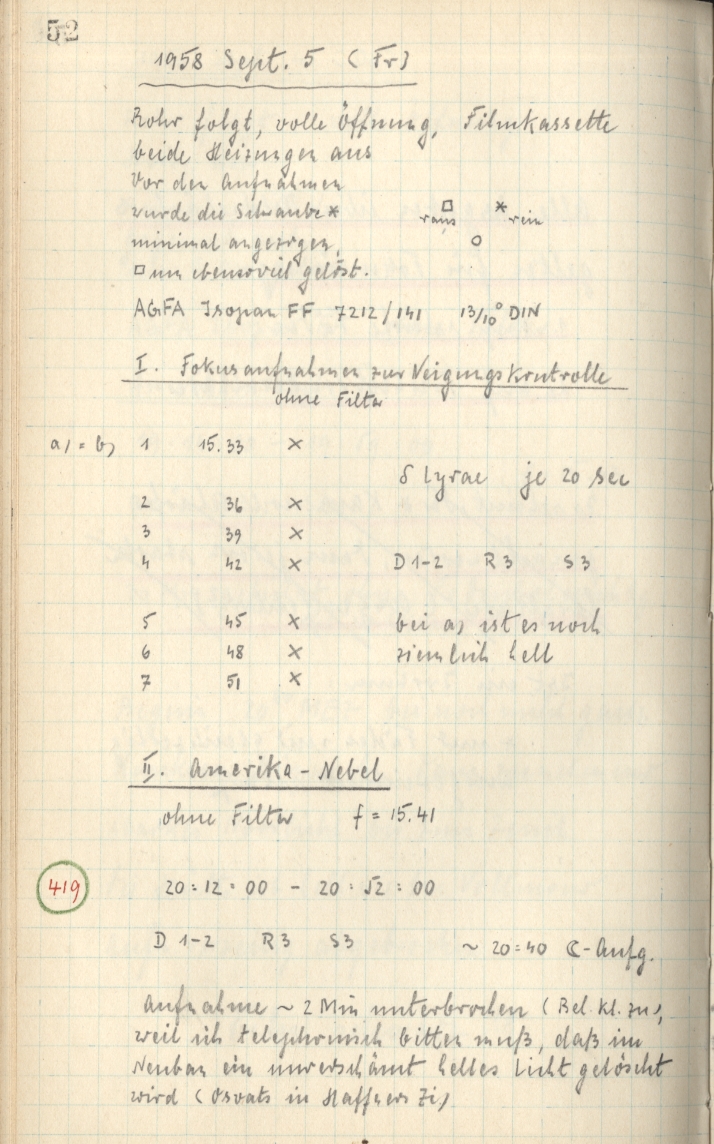 52
1958 Sept. 5 (Fr)
Rohr folgt, volle Öffnung, Filmkassette
beide Heizungen aus
Vor den Aufnahmen
wurde die Schraube * □ raus * rein
minimal angezogen, o
□ um ebensoviel gelöst.
AGFA Isopan FF 7212/141 13/10° DIN
I. Fokusaufnahmen zur Neigungskontrolle
ohne Filter
a) = b) 1 15.33 ×
δ Lyrae je 20 sec
2 36 ×
3 39 ×
4 42 × D 1-2 R 3 S 3
5 45 × bei a) ist es noch
6 48 × ziemlich hell
7 51 ×
II. Amerika-Nebel
ohne Filter f = 15.41
419 20:12:00 - 20:52:00
D 1-2 R3 S3 ~ 20:40 ☾-Aufg.
Aufnahme ~ 2 Min unterbrochen (Bel. kl. zu),
weil ich telephonisch bitten muß, daß im
Neubau ein unverschämt helles Licht gelöscht
wird (Osvats in Haffners Zi)